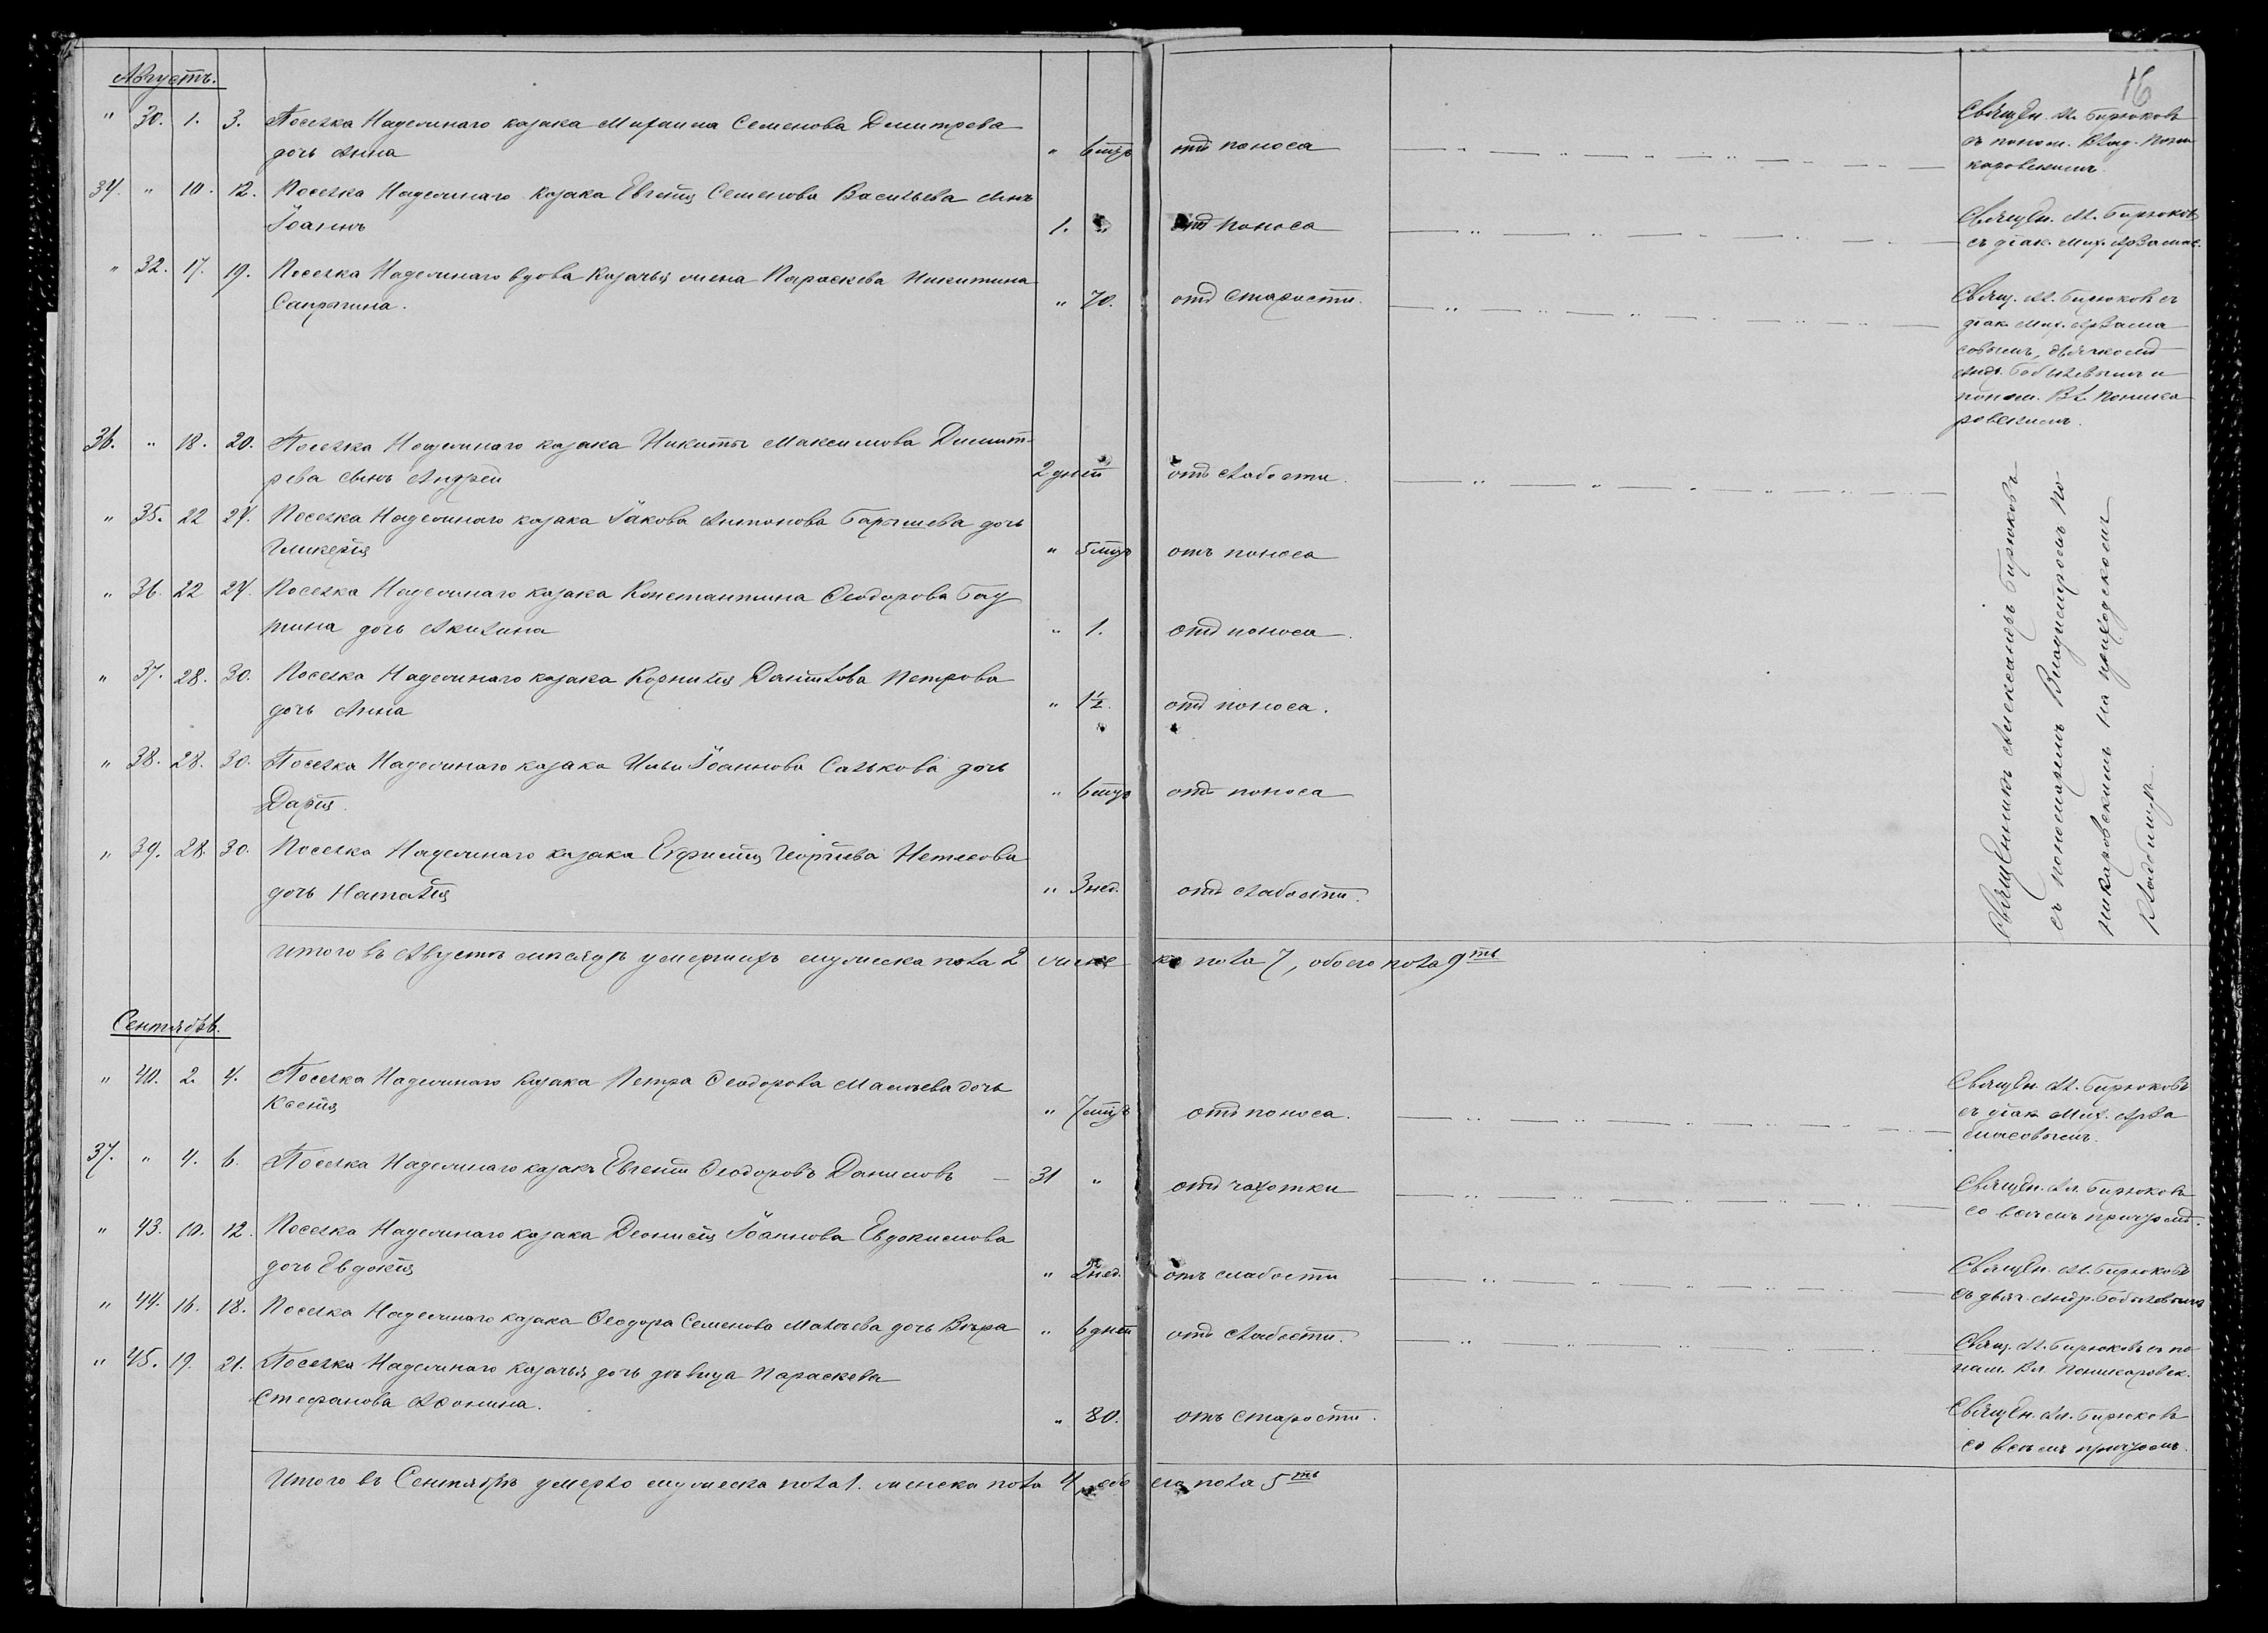 16
Августъ.
" 30. 1. 3. Поселка Надежинаго казака Михаила Семенова Дмитрева
дочь Анна " 6 мцъ отъ поноса Священ. Ал. Бирюковъ
съ поном. Влад. Пони-
каровскимъ.
34. " 10. 12. Поселка Надежинаго казака Евгенія Семенова Васильева сынъ
Іоаннъ 1. " отъ поноса Священ. Ал. Бирюковъ
съ діак. Мих. Арзамас.
" 32. 17. 19. Поселка Надежинаго вдова казачья жена Параскева Никитина
Сапрыгина. " 70. отъ старости. Свящ. Ал. Бирюковъ съ
діак. Мих. Арзама
совымъ, дьячкомъ
Андр. Бобылевымъ и
поном. Вл. Поника
ровскимъ.
36. " 18. 20. Поселка Надежинаго казака Никиты Максимова Димит-
рева сынъ Андрей 2 дней отъ слабости.
" 35. 22 24. Поселка Надежинаго казака Іакова Антонова Барышева дочь
Гликерія " 5 мцъ отъ поноса
" 36. 22 24. Поселка Надежинаго казака Константина Ѳеодорова
дочь Акилина " 1. отъ поноса.
" 37. 28. 30. Поселка Надежинаго казака Корнилія Данілова Петрова
дочь Анна " 1½. отъ поноса.
" 38. 28. 30. Поселка Надежинаго казака Ильи Іоаннова Салькова дочь
Дарія. " 6 мцъ отъ поноса
" 39. 28. 30. Поселка Надежинаго казака Евфимія Георгіева Нетесова
дочь Наталія " 3 нед. отъ слабости.
Священникъ Александръ Бирюковъ
съ пономаремъ Владиміромъ По-
никаровскимъ на приходскомъ
кладбищѣ.
Итого въ Августѣ мѣсяцѣ умершихъ мужеска пола 2 женска пола 7, обоего пола 9ть
Сентябрь.
" 40. 2. 4. Поселка Надежинаго казака Петра Ѳеодорова Малюева дочь
Ксенія " 7 мцъ отъ поноса. Священ. Ал. Бирюковъ
съ діак. Мих. Арза
масовымъ.
37. " 4. 6. Поселка Надежинаго казакъ Евгеній Ѳеодоровъ Даниловъ 31 " отъ чахотки Священ. Ал. Бирюковъ
со всѣмъ причтомъ.
" 43. 10. 12. Поселка Надежинаго казака Деонисія Іоаннова Евдокимова
дочь Евдокія " 2 нед. отъ слабости Священ. Ал. Бирюковъ
съ дьяч. Андр. Бобылевымъ
" 44. 16. 18. Поселка Надежинаго казака Ѳеодора Семенова дочь Вѣра " 6 дней отъ слабости. Свящ. Ал. Бирюковъ съ по-
ном. Вл. Поникаровск.
" 45. 19. 21. Поселка Надежинаго казачья дочь дѣвица Параскева
Стефанова Аѳонина. " 80. отъ старости. Священ. Ал. Бирюковъ
со всѣмъ причтомъ.
Итого въ Сентябрѣ умерло мужеска пола 1. женска пола 4, обоего пола 5ть